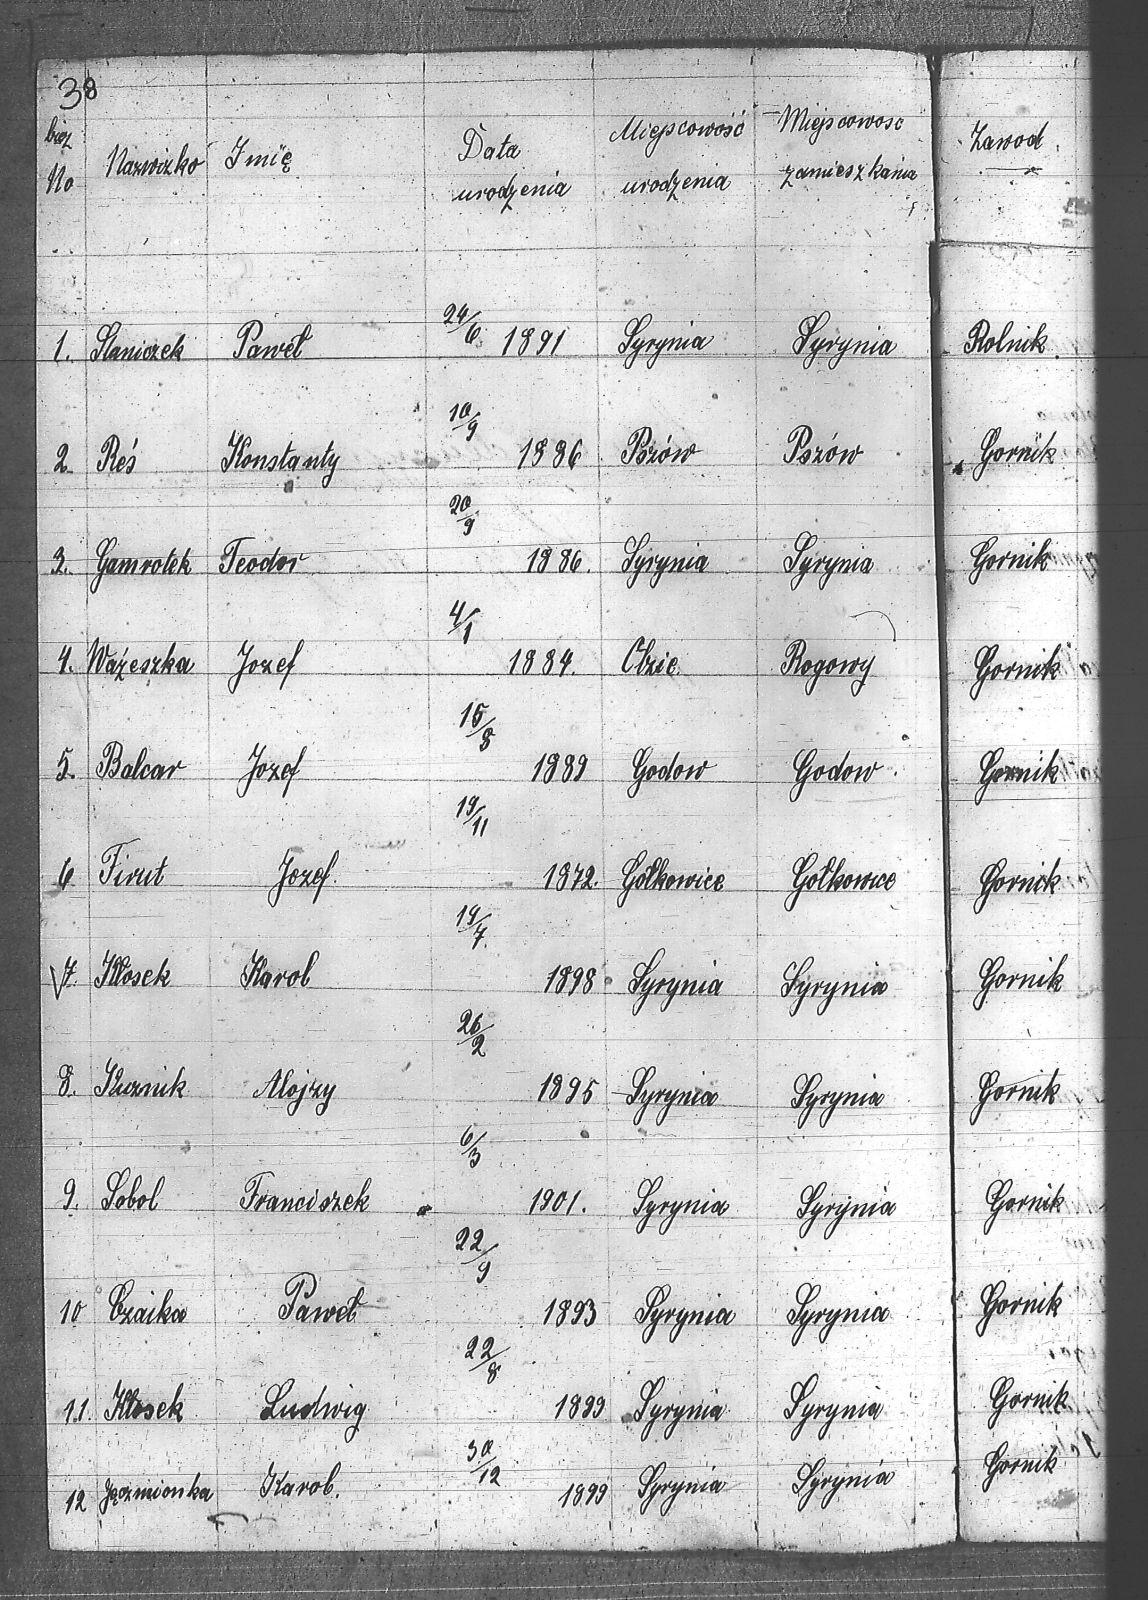 38
bież No Nazwizko Imię Data urodzenia Miejscowość urodzenia Miejscowosc zamieszkania Zawod
1. Staniczek Paweł 24/6 1891 Syrynia Syrynia Rolnik.
2. Reś Konstanty 10/9 1886 Pszów Pszów Gornik
3. Gamrotek Teodor 20/9 1886. Syrynia Syrynia Gornik
4. Wążeszka Jozef 4/1 1884. Olzie. Rogowy Gornik
5. Balcar Jozef 16/8 1889 Godow Godow. Gornik
6 Firut Jozef. 19/11 1872. Gołkowice Gołkowice Gornik
7. Kłosek Karol 19/7. 1898 Syrynia Syrynia Gornik
8. Kuznik Alojzy 26/2 1895 Syrynia Syrynia Gornik
9. Sobol Franciszek 6/3 1901. Syrynia Syrynia Gornik
10 Czaika Paweł 22/9 1893 Syrynia Syrynia Gornik
11. Kłosek Ludwig 22/8 1899 Syrynia Syrynia Gornik
12 Jęczmionka Karol. 30/12 1899 Syrynia Syrynia Gornik